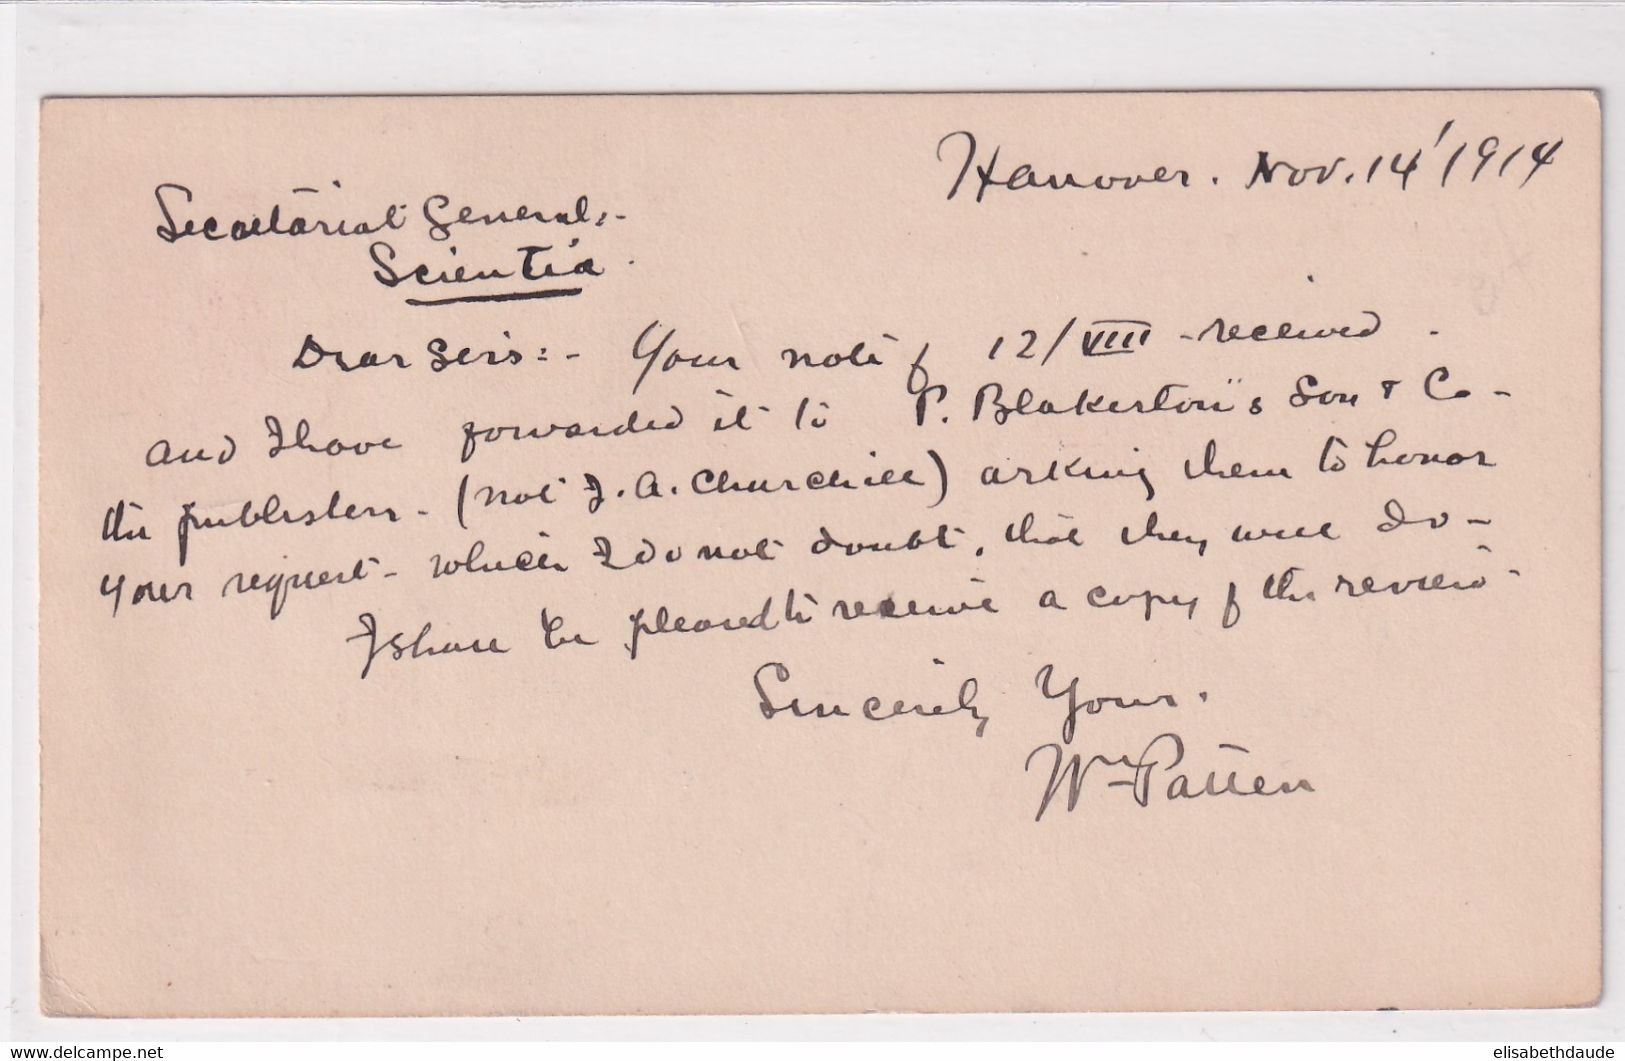 Hanover. Nov. 14' 1914
Secretariat General,-
Scientia.
Dear Sirs:- Your note of 12/VIII - received -
and I have forwarded it to P. Blakeston's Son & Co -
the publishers - (not J. A. Churchill) asking them to honor
your request - which I do not doubt, that they will do -
I shall be pleased to receive a copy of the review -
Sincerely Yours.
Wm Patten
elisabethdaude
www.delcampe.net